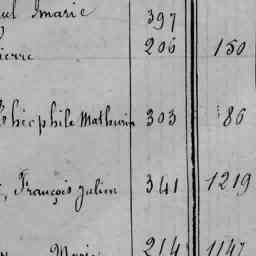 Marie 397
ierre 206 150
Théophile Mathurin 303 86
, François Julien 341 1219
Marie 214 1147